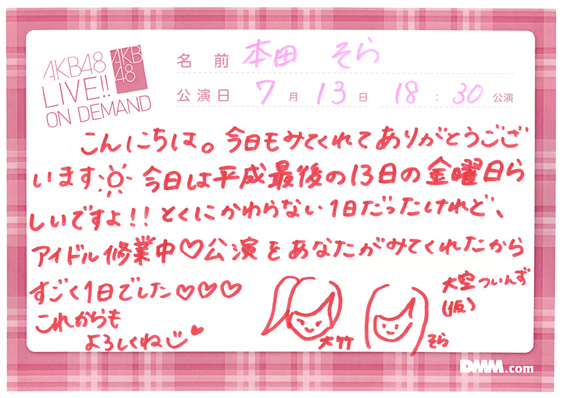 AKB48
LIVE!!
ON DEMAND
AKB
48
名前 本田 そら
公演日 7月13日 18:30公演
こんにちは。今日もみてくれてありがとうござ
います 今日は平成最後の13日の金曜日ら
しいですよ!! とくにかわらない1日だったけれど、
アイドル修業中♡公演をあなたがみてくれたから
すごく1日でした♡♡♡
これからも
よろしくね
大竹
そら
大空ついんず
(仮)
DMM.com